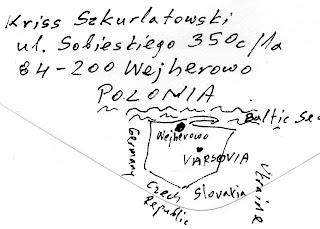 Kriss Szkurlatowski
ul. Sobieskiego 350c/1a
84-200 Wejherowo
POLONIA
Baltic Sea
Wejherowo
VARSOVIA
Germany
Czech
Republic
Slovakia
Ukraine